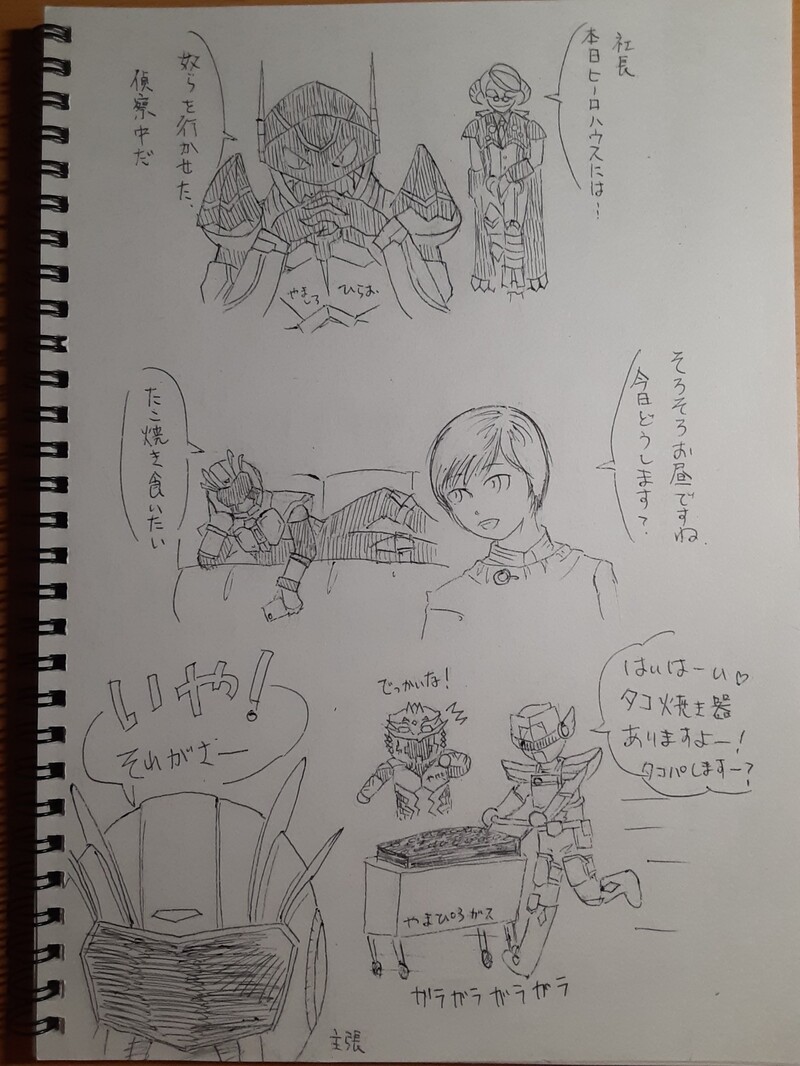 社長
本日ヒーロハウスには…
奴らを行かせた、
偵察中だ
やましろ
ひらお
そろそろお昼ですね、
今日どうします?
たこ焼き食いたい
いや!
それがさー
でっかいな!
はいはーい♡
タコ焼き器
ありますよー!
タコパしますー?
やまぴろガス
ガラガラガラガラ
主張